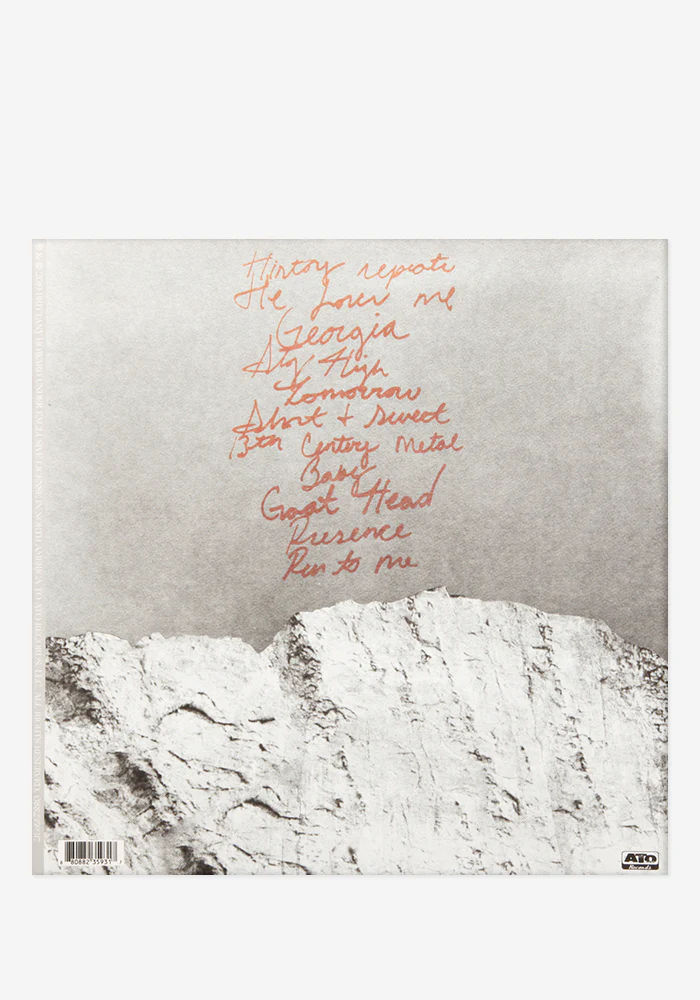 History repeats
He Loves me
Georgia
Stay High
Tomorrow
Short + Sweet
13th Century Metal
Baby
Goat Head
Presence
Run to me
80882 35931
ATO
Records